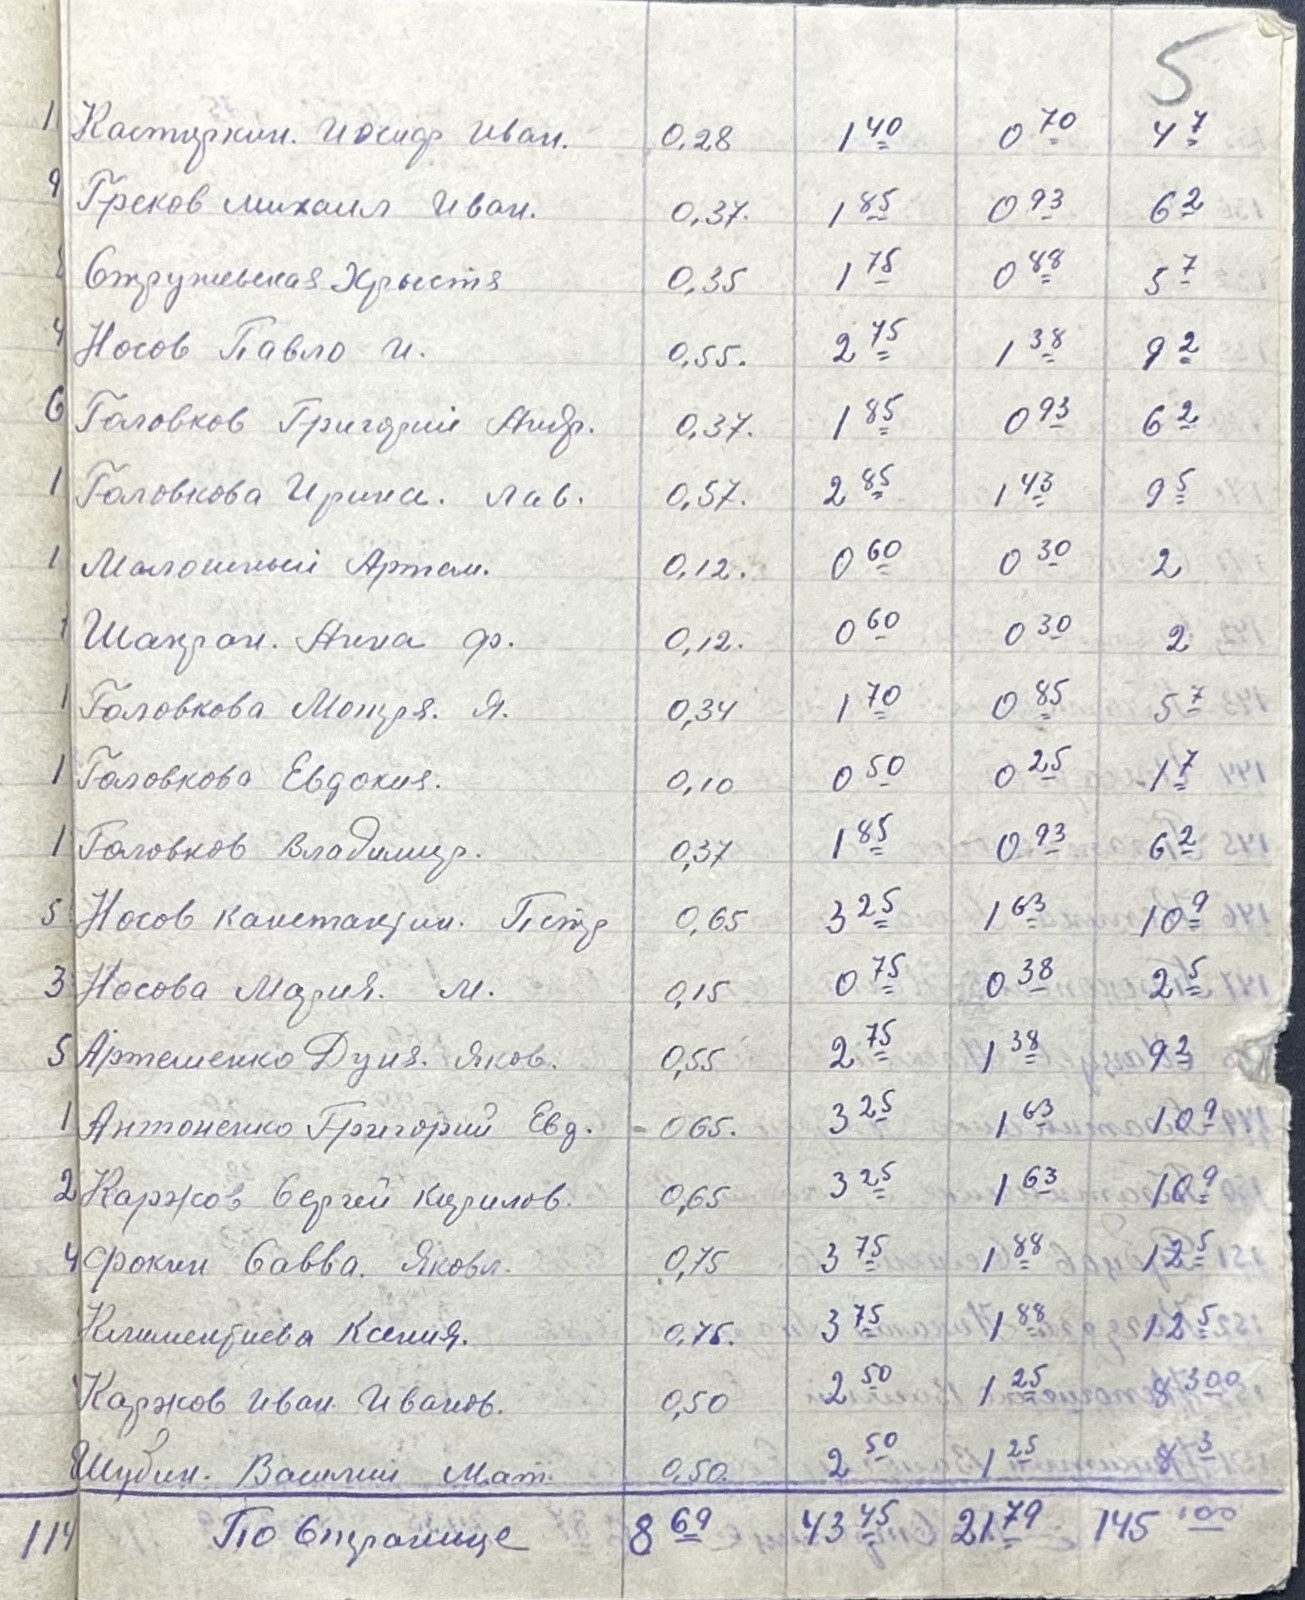 5
1 Кастыркин. Иосиф Иван. 0,28 1 40 0 70 4 7
9 Греков Михаил Иван. 0,37. 1 85 0 93 6 2
Стружевская Хрыстя 0,35 1 75 0 88 5 7
4 Носов Павло И. 0,55. 2 75 1 38 9 2
6 Головков Григорий Андр. 0,37. 1 85 0 93 6 2
1 Головкова Ирина. Лав. 0,57. 2 85 1 43 9 5
1 Малошный Артем. 0,12. 0 60 0 30 2
Шапран. Анна Ф. 0,12. 0 60 0 30 2
1 Головкова Мотря. Я. 0,34 1 70 0 85 5 7
1 Головкова Евдокия. 0,10 0 50 0 25 1 7
1 Головков Владимир. 0,37 1 85 0 93 6 2
5 Носов Канстантин. Петр 0,65 3 25 1 63 10 9
3 Носова Мария. М. 0,15 0 75 0 38 2 5
5 Артеменко Дуня. Яков. 0,55 2 75 1 38 9 2
1 Антоненко Григорий Евд. 065. 3 25 1 63 10 9
2 Каржов Сергей Кирилов. 0,65 3 25 1 63 10 9
4 Фокин Савва. Яковл. 0,75 3 75 1 88 12 5
Климентиева Ксения. 0,75. 3 75 1 88 12 5
Каржов Иван Иванов. 0,50 2 50 1 25 8 300
Шубин. Василий Мат. 0,50. 2 50 1 25 8 3
114 По Странице 8 69 43 45 21 79 145 100